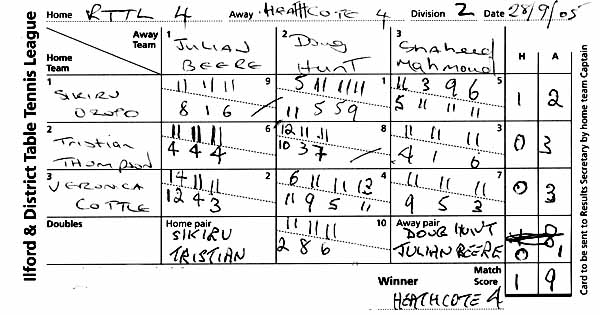 Ilford & District Table Tennis League
Home RTTL 4 Away HEATHCOTE 4 Division 2 Date 28/9/05
Away Team
Home Team
1 JULIAN BEERE
2 Doug HUNT
3 Shaheed Mahmoud
H A
1 SIKIRU
9 11 11 11
8 1 6
1 5 11 11 11
11 5 5 9
5 11 3 9 6
5 11 11 11
1 2
2 Tristian THOMPSON
6 11 11 11
4 4 4
8 12 11 11
10 3 7
3 11 11 11
4 1 6
0 3
3 VERONICA COTTLE
2 14 11 11
12 4 3
4 6 11 11 13
11 9 5 11
7 11 11 11
9 5 3
0 3
Doubles
Home pair
SIKIRU
TRISTIAN
10 11 11 11
2 8 6
Away pair
DOUG HUNT
JULIAN BEERE
0 1
Winner
HEATHCOTE 4
Match Score
1 9
Card to be sent to Results Secretary by home team Captain